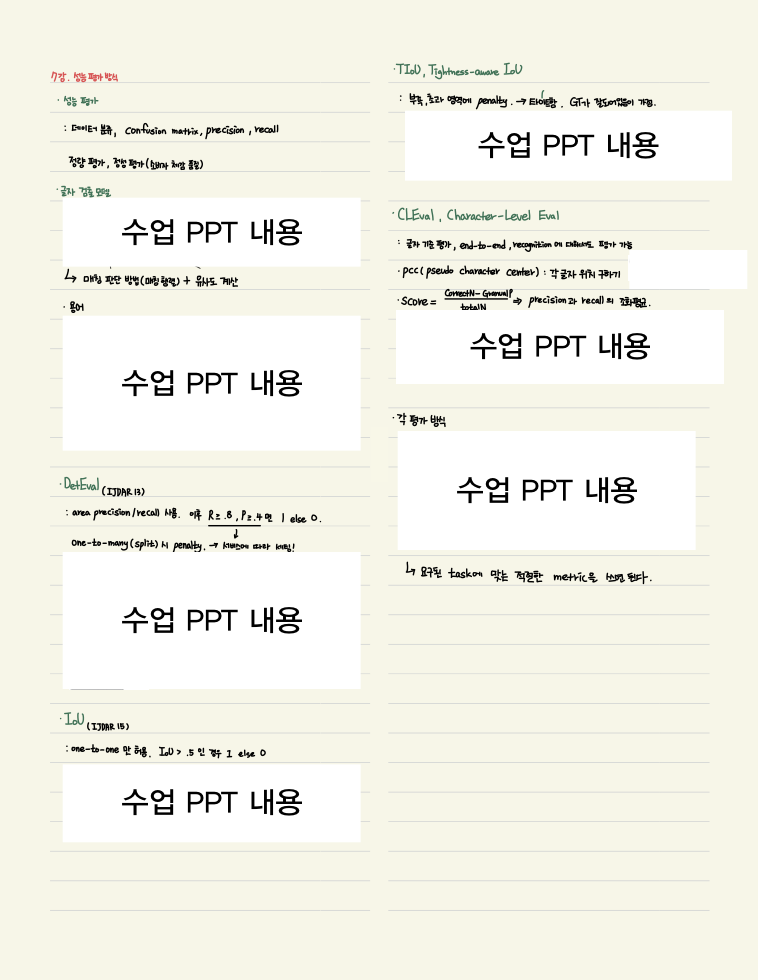 7강. 성능 평가 방식
· 성능 평가
: 데이터 분류, confusion matrix, precision, recall
정량 평가, 정성 평가 (소비자 체감 품질)
· 글자 검출 모델
수업 PPT 내용
↳ 매칭 판단 방법(매칭 행렬) + 유사도 계산
· 용어
수업 PPT 내용
· DetEval (IJDAR 13)
: area precision/recall 사용. 이후 R≥.8, P≥.4 면 1 else 0.
one-to-many(split) 시 penalty. → 서비스에 따라 세팅!
수업 PPT 내용
· IoU (IJDAR 15)
: one-to-one 만 허용. IoU > .5 인 경우 1 else 0
수업 PPT 내용
· TIoU, Tightness-aware IoU
: 부족, 초과 영역에 penalty. → 타이트함. GT가 잘되어있음이 가정.
수업 PPT 내용
· CLEval, Character-Level Eval
: 글자 기준 평가, end-to-end, recognition 에 대해서도 평가 가능
· pcc(pseudo character center) : 각 글자 위치 구하기
· score = CorrectN-GranualP / totalN ⇒ precision과 recall의 조화평균.
수업 PPT 내용
· 각 평가 방식
수업 PPT 내용
↳ 요구된 task에 맞는 적절한 metric을 쓰면 된다.